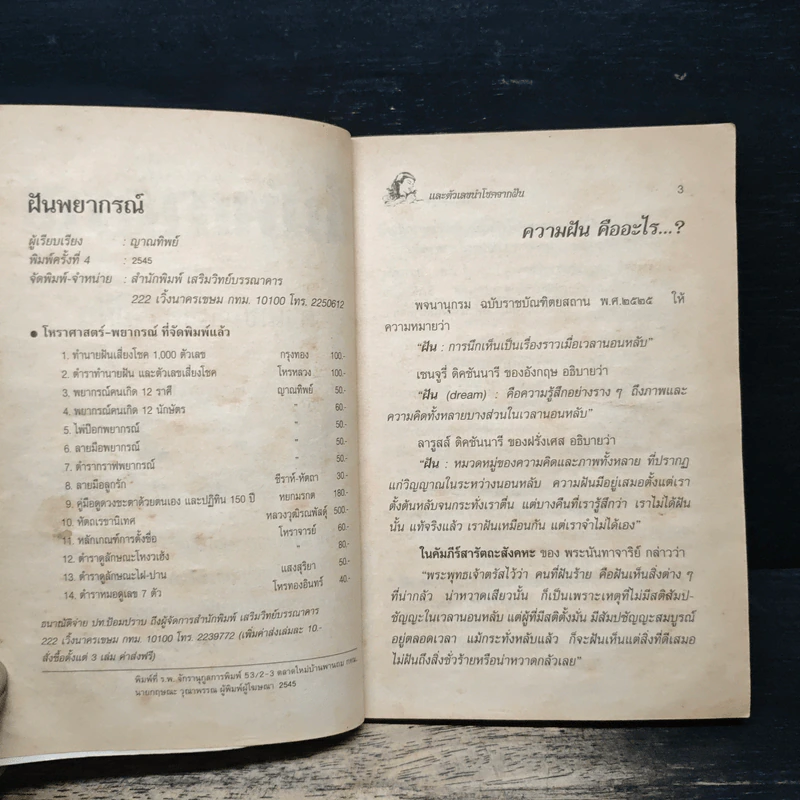 ฝันพยากรณ์
ผู้เรียบเรียง : ญาณทิพย์
พิมพ์ครั้งที่ 4 : 2545
จัดพิมพ์-จำหน่าย : สำนักพิมพ์ เสริมวิทย์บรรณาคาร
222 เวิ้งนาครเขษม กทม. 10100 โทร. 2250612
● โหราศาสตร์-พยากรณ์ ที่จัดพิมพ์แล้ว
1. ทำนายฝันเสี่ยงโชค 1,000 ตัวเลข กรุงทอง 100.-
2. ตำราทำนายฝัน และตัวเลขเสี่ยงโชค โหรหลวง 100.-
3. พยากรณ์คนเกิด 12 ราศี ญาณทิพย์ 50.-
4. พยากรณ์คนเกิด 12 นักษัตร " 60.-
5. ไพ่ป๊อกพยากรณ์ " 50.-
6. ลายมือพยากรณ์ " 50.-
7. ตำรากราฟพยากรณ์ " 50.-
8. ลายมือลูกรัก ชีราห์-หัตถา 30.-
9. คู่มือดูดวงชะตาด้วยตนเอง และปฏิทิน 150 ปี หยกมรกต 180.-
10. หัตถเรขานิเทศ หลวงวุฒิรณพัสดุ์ 500.-
11. หลักเกณฑ์การตั้งชื่อ โหราจารย์ 60.-
12. ตำราดูลักษณะโหงวเฮ้ง " 80.-
13. ตำราดูลักษณะไฝ-ปาน แสงสุริยา 50.-
14. ตำราหมอดูเลข 7 ตัว โหรทองอินทร์ 40.-
ธนาณัติจ่าย ปท.ป้อมปราบ ถึงผู้จัดการสำนักพิมพ์ เสริมวิทย์บรรณาคาร
222 เวิ้งนาครเขษม กทม. 10100 โทร. 2239772 (เพิ่มค่าส่งเล่มละ 10.-
สั่งซื้อตั้งแต่ 3 เล่ม ค่าส่งฟรี)
พิมพ์ที่ ร.พ. จักรานุกูลการพิมพ์ 53/2-3 ตลาดใหม่บ้านพานถม กทม.
นายกฤษณะ วุณาพรรณ ผู้พิมพ์ผู้โฆษณา 2545
และตัวเลขนำโชคจากฝัน 3
ความฝัน คืออะไร...?
พจนานุกรม ฉบับราชบัณฑิตยสถาน พ.ศ.๒๕๒๕ ให้
ความหมายว่า
"ฝัน : การนึกเห็นเป็นเรื่องราวเมื่อเวลานอนหลับ"
เซนจูรี่ ดิคชันนารี ของอังกฤษ อธิบายว่า
"ฝัน (dream) : คือความรู้สึกอย่างราง ๆ ถึงภาพและ
ความคิดทั้งหลายบางส่วนในเวลานอนหลับ"
ลารูสส์ ดิคชันนารี ของฝรั่งเศส อธิบายว่า
"ฝัน : หมวดหมู่ของความคิดและภาพทั้งหลาย ที่ปรากฏ
แก่วิญญาณในระหว่างนอนหลับ ความฝันมีอยู่เสมอตั้งแต่เรา
ตั้งต้นหลับจนกระทั่งเราตื่น แต่บางคืนที่เรารู้สึกว่า เราไม่ได้ฝัน
นั้น แท้จริงแล้ว เราฝันเหมือนกัน แต่เราจำไม่ได้เอง"
ในคัมภีร์สารัตถะสังคหะ ของ พระนันทาจาริย์ กล่าวว่า
"พระพุทธเจ้าตรัสไว้ว่า คนที่ฝันร้าย คือฝันเห็นสิ่งต่าง ๆ
ที่น่ากลัว น่าหวาดเสียวนั้น ก็เป็นเพราะเหตุที่ไม่มีสติสัมป-
ชัญญะในเวลานอนหลับ แต่ผู้ที่มีสติตั้งมั่น มีสัมปชัญญะสมบูรณ์
อยู่ตลอดเวลา แม้กระทั่งหลับแล้ว ก็จะฝันเห็นแต่สิ่งที่ดีเสมอ
ไม่ฝันถึงสิ่งชั่วร้ายหรือน่าหวาดกลัวเลย"